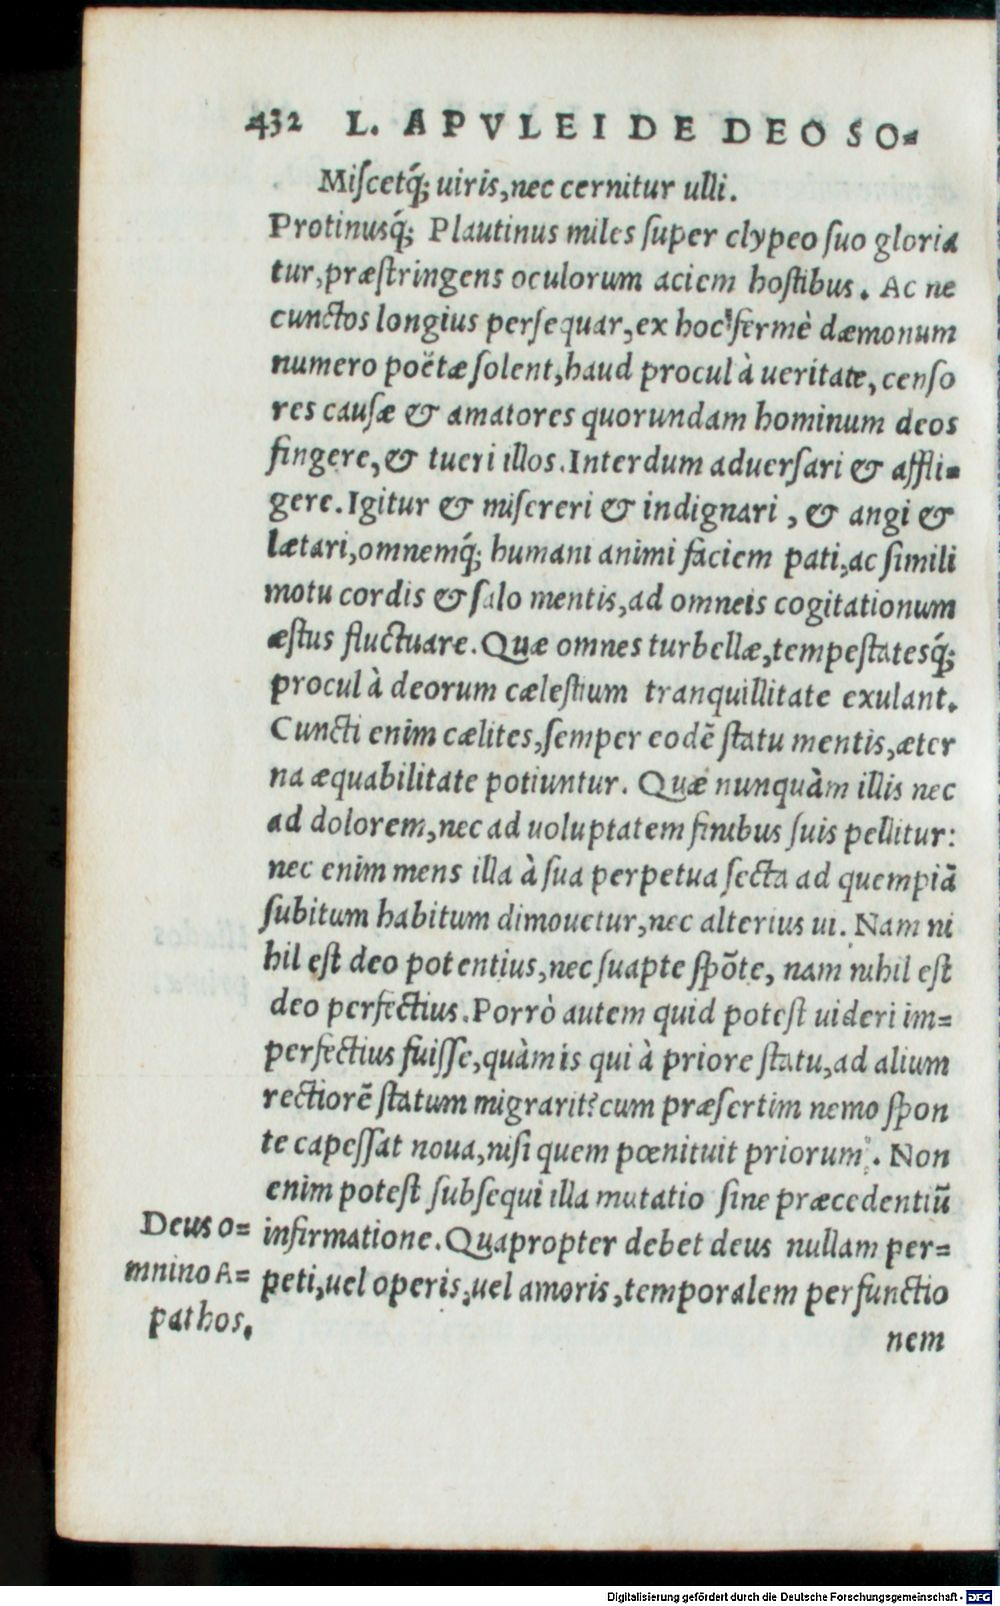 432 L. APVLEI DE DEO SO-
Miſcetq́; uiris, nec cernitur ulli.
Protinusq́; Plautinus miles ſuper clypeo ſuo gloria
tur, præſtringens oculorum aciem hoſtibus. Ac ne
cunctos longius perſequar, ex hoc fermè dæmonum
numero poëtæ ſolent, haud procul à ueritate, cenſo
res cauſæ & amatores quorundam hominum deos
fingere, & tueri illos. Interdum aduerſari & affli-
gere. Igitur & miſereri & indignari, & angi &
lætari, omnemq́; humani animi faciem pati, ac ſimili
motu cordis & ſalo mentis, ad omneis cogitationum
æſtus fluctuare. Quæ omnes turbellæ, tempeſtatesq́;
procul à deorum cæleſtium tranquillitate exulant.
Cuncti enim cælites, ſemper eodẽ ſtatu mentis, æter
na æquabilitate potiuntur. Quæ nunquàm illis nec
ad dolorem, nec ad uoluptatem finibus ſuis pellitur:
nec enim mens illa à ſua perpetua ſecta ad quempiã
ſubitum habitum dimouetur, nec alterius ui. Nam ni
hil eſt deo potentius, nec ſuapte ſpõte, nam nihil eſt
deo perfectius. Porrò autem quid poteſt uideri im-
perfectius fuiſſe, quàm is qui à priore ſtatu, ad alium
rectiorẽ ſtatum migrarit? cum præſertim nemo ſpon
te capeſſat noua, niſi quem pœnituit priorum. Non
enim poteſt ſubſequi illa mutatio ſine præcedentiũ
infirmatione. Quapropter debet deus nullam per-
peti, uel operis, uel amoris, temporalem perfunctio
nem
Deus o-
mnino A-
pathos.
Digitalisierung gefördert durch die Deutsche Forschungsgemeinschaft - DFG